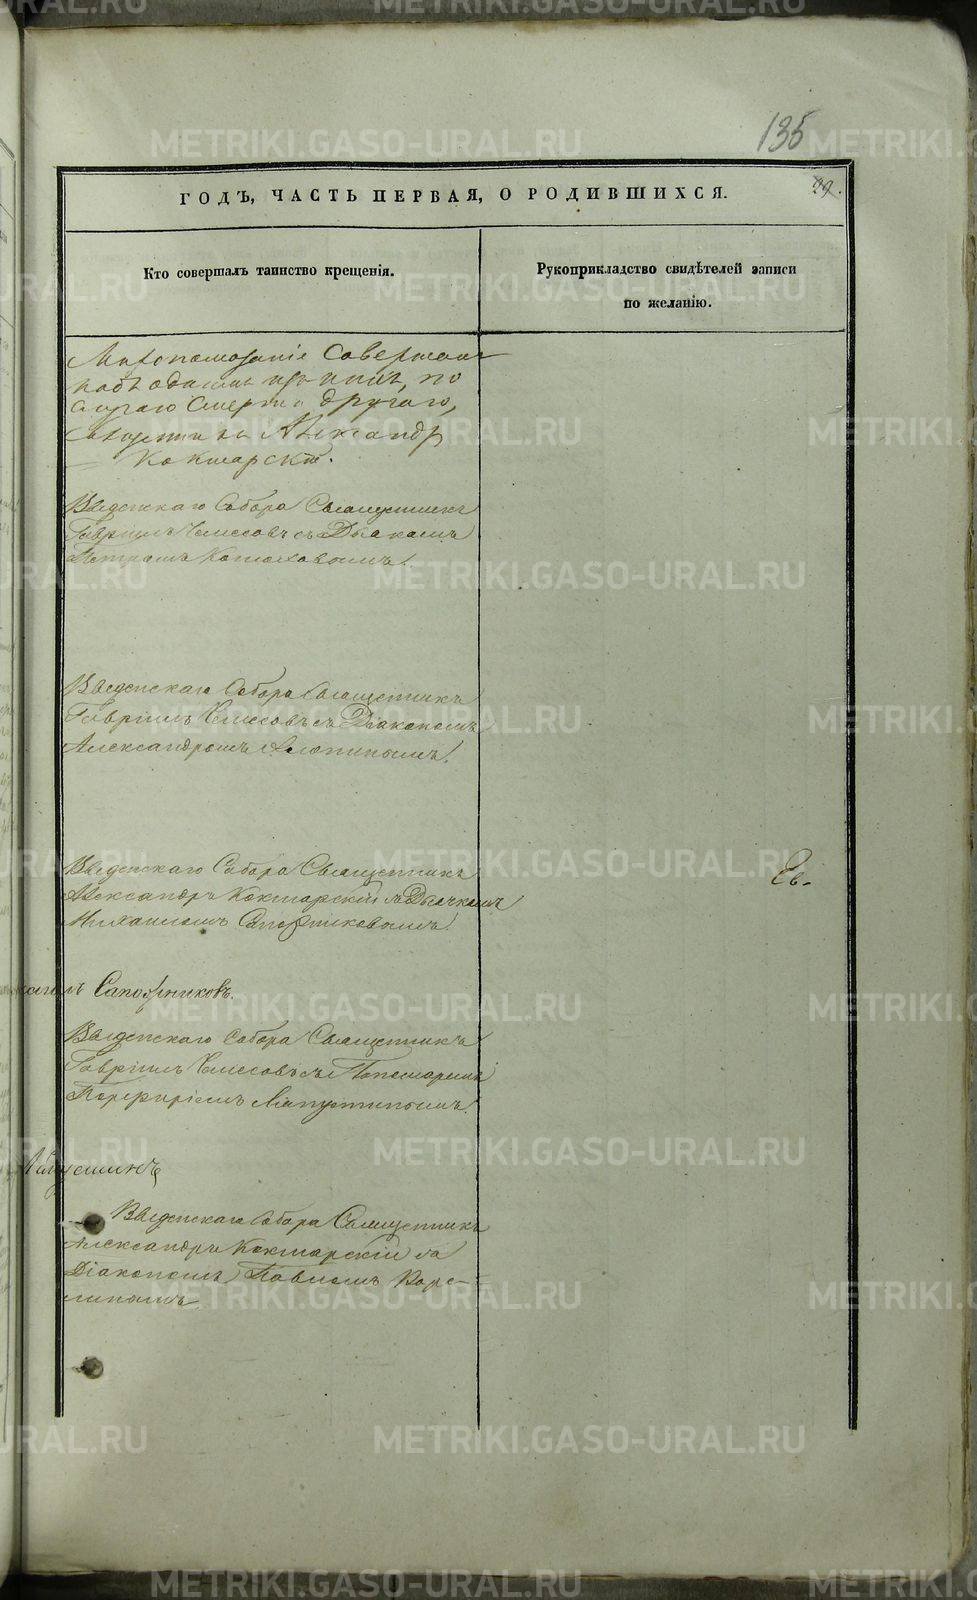 135
99.
ГОДЪ, ЧАСТЬ ПЕРВАЯ, О РОДИВШИХСЯ.
Кто совершалъ таинство крещенія.
Рукоприкладство свидѣтелей записи
по желанію.
Миропомазаніе совершалъ
надъ однимъ изъ нихъ, по
случаю смерти другаго,
Священникъ Александръ
Кокшарскій.
Введенскаго Собора Священникъ
Гавріилъ съ Дьякомъ
Петромъ
Введенскаго Собора Священникъ
Гавріилъ съ Діакономъ
Александромъ
Введенскаго Собора Священникъ
Александръ Кокшарскій съ Дьячкомъ
Михаиломъ Сапожниковымъ.
Сапожниковъ.
Введенскаго Собора Священникъ
Гавріилъ съ Пономаремъ
Порфиріемъ Лапустинымъ.
Лапустинъ
Введенскаго Собора Священникъ
Александръ Кокшарскій съ
Діакономъ Павломъ
METRIKI.GASO-URAL.RU